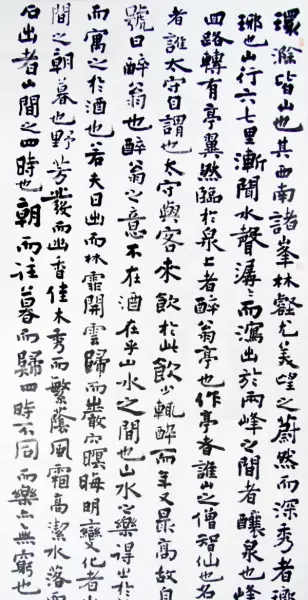 環滁皆山也其西南諸峯林壑尤美望之蔚然而深秀者瑯
琊也山行六七里漸聞水聲潺々而瀉出於兩峰之間者釀泉也峰
回路轉有亭翼然臨於泉上者醉翁亭也作亭者誰山之僧智仙也名
者誰太守自謂也太守與客來飲於此飲少輒醉而年又最高故自
號曰醉翁也醉翁之意不在酒在乎山水之間也山水之樂得之於
而寓之於酒也若夫日出而林霏開雲歸而巖穴暝晦明變化者山
間之朝暮也野芳發而幽香佳木秀而繁蔭風霜高潔水落而
石出者山間之四時也朝而往暮而歸四時不同而樂亦無窮也